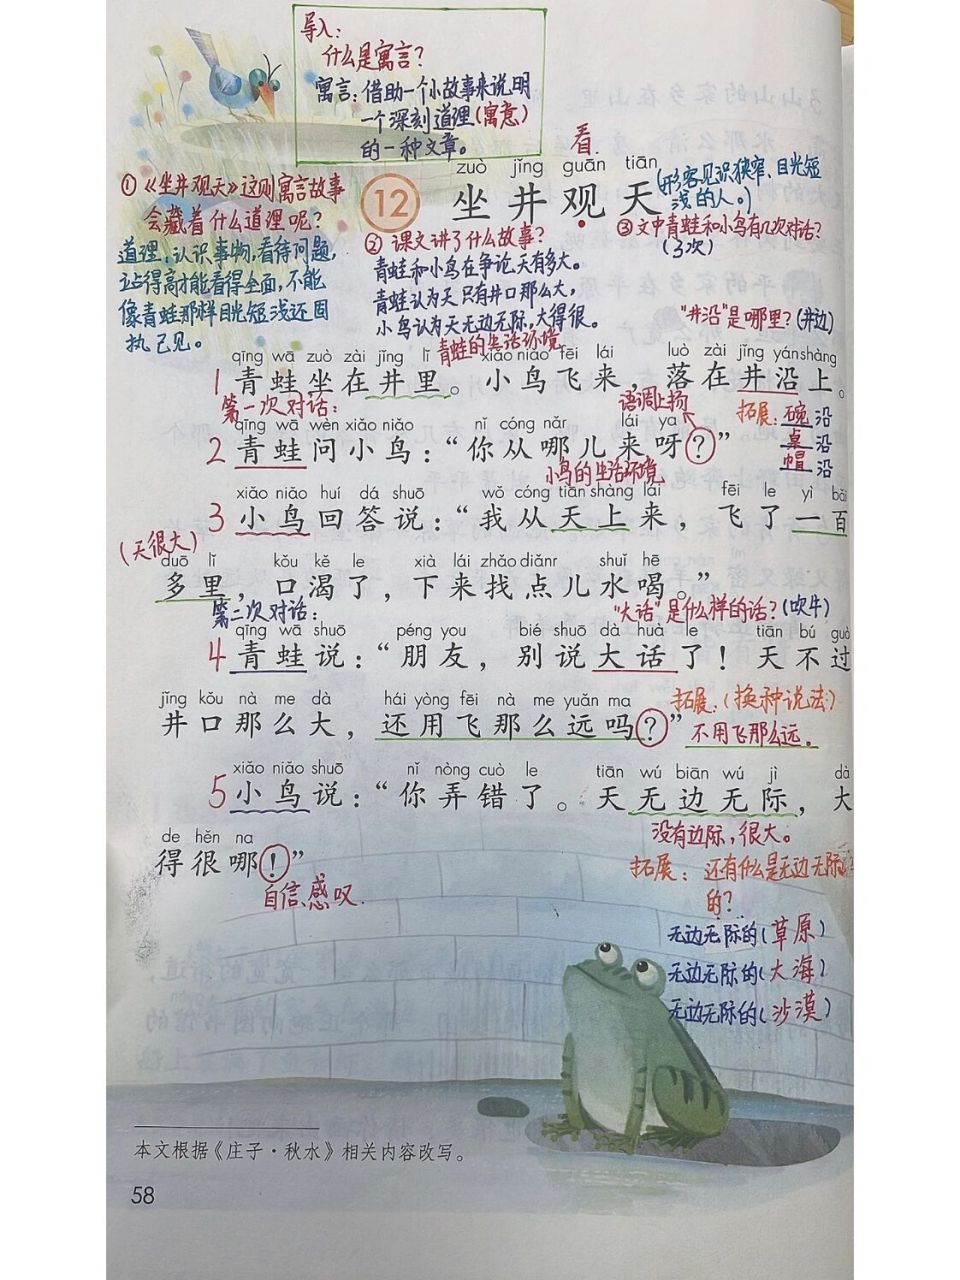 导入:
什么是寓言?
寓言:借助一个小故事来说明
一个深刻道理(寓意)
的一种文章。
看.
zuò jǐng guān tiān
12 坐井观天
(形容见识狭窄,目光短
浅的人。)
①《坐井观天》这则寓言故事
会藏着什么道理呢?
道理:认识事物,看待问题,
站得高才能看得全面,不能
像青蛙那样目光短浅还固
执己见。
② 课文讲了什么故事?
青蛙和小鸟在争论天有多大。
青蛙认为天只有井口那么大,
小鸟认为天无边无际,大得很。
③文中青蛙和小鸟有几次对话?
(3次)
"井沿"是哪里?(井边)
青蛙的生活环境
qīng wā zuò zài jǐng lǐ xiǎo niǎo fēi lái luò zài jǐng yán shàng
1 青蛙坐在井里。小鸟飞来,落在井沿上。
第一次对话:
语调上扬
拓展:碗沿
桌沿
帽沿
qīng wā wèn xiǎo niǎo nǐ cóng nǎr lái ya
2 青蛙问小鸟:“你从哪儿来呀?”
小鸟的生活环境
xiǎo niǎo huí dá shuō wǒ cóng tiān shàng lái fēi le yì bǎi
3 小鸟回答说:“我从天上来,飞了一百
(天很大)
duō lǐ kǒu kě le xià lái zhǎo diǎnr shuǐ hē
多里,口渴了,下来找点儿水喝。”
第二次对话:
"大话"是什么样的话?(吹牛)
qīng wā shuō péng you bié shuō dà huà le tiān bú guò
4 青蛙说:“朋友,别说大话了!天不过
jǐng kǒu nà me dà hái yòng fēi nà me yuǎn ma
井口那么大,还用飞那么远吗?”
拓展:(换种说法)
不用飞那么远。
xiǎo niǎo shuō nǐ nòng cuò le tiān wú biān wú jì dà
5 小鸟说:“你弄错了。天无边无际,大
没有边际,很大。
de hěn na
得很哪!”
自信、感叹.
拓展:还有什么是无边无际
的?
无边无际的(草原)
无边无际的(大海)
无边无际的(沙漠)
本文根据《庄子·秋水》相关内容改写。
58